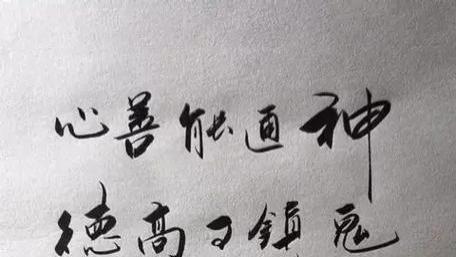 心善能通神
德高可鎮鬼